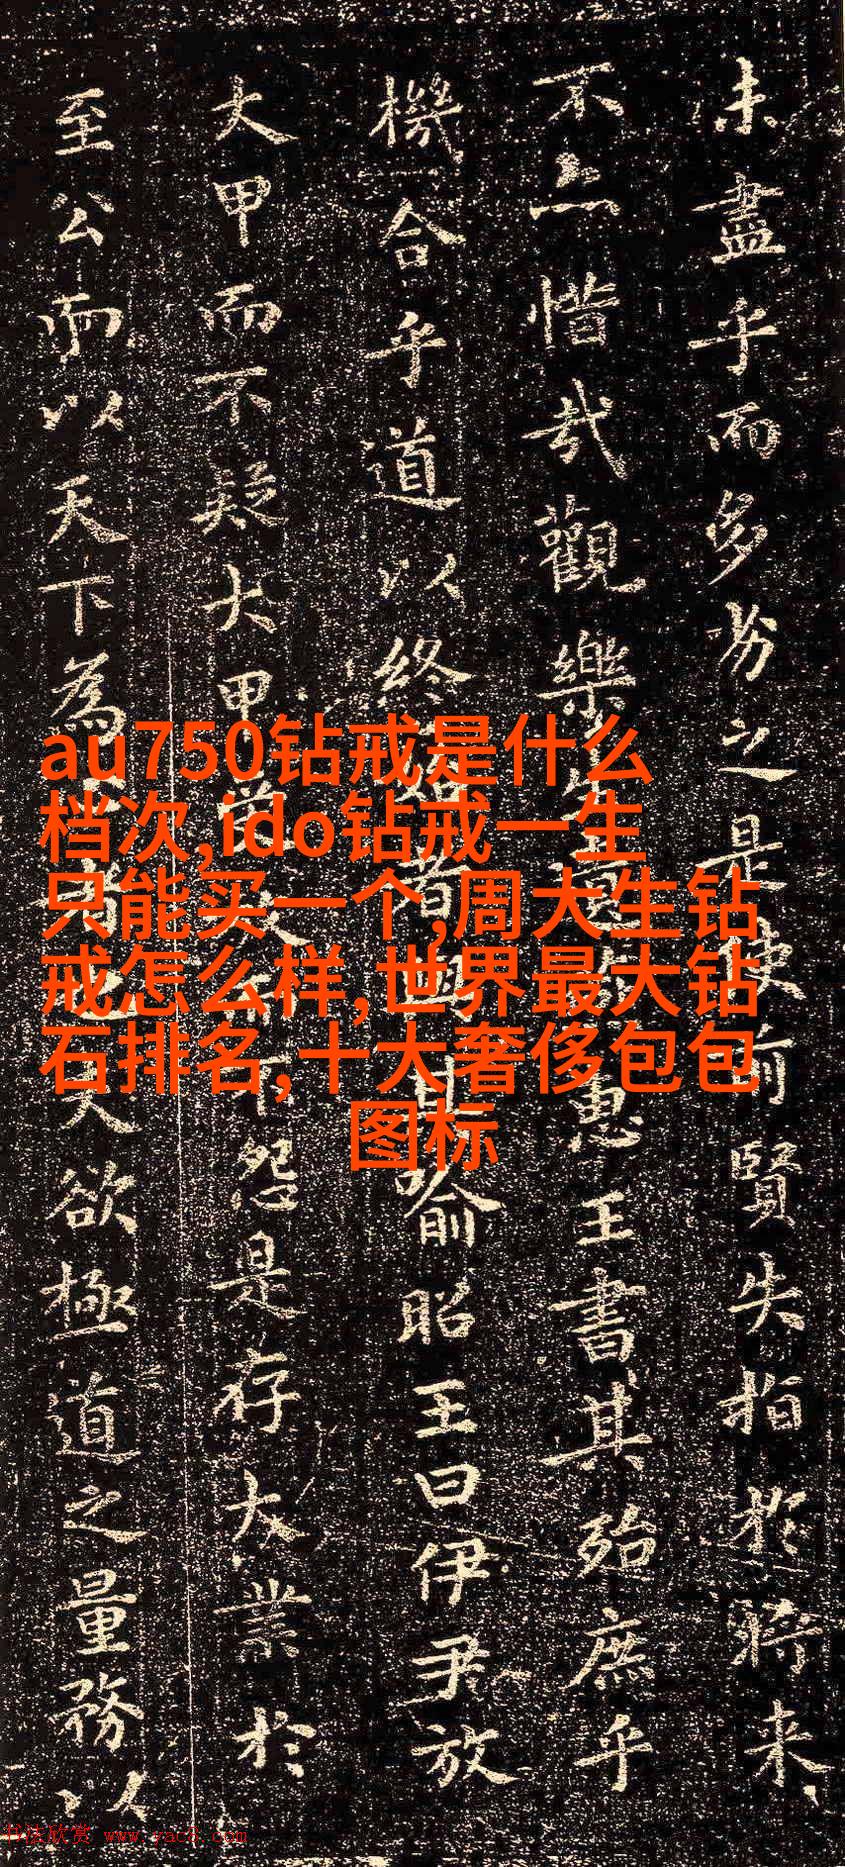 未盡乎而多劣之是使前賢失指於將来
不亦惜哉觀樂生遺燕惠王書其殆庶乎
機合乎道以終始者與其喻昭王曰伊尹放
大甲而不疑大甲受放而不怨是存大業於
至公而以天下為心者也夫欲極道之量務以
au750钻戒是什么
档次,ido钻戒一生
只能买一个,周大生钻
戒怎么样,世界最大钻
石排名,十大奢侈包包
图标
书法欣赏 www.yac8.com